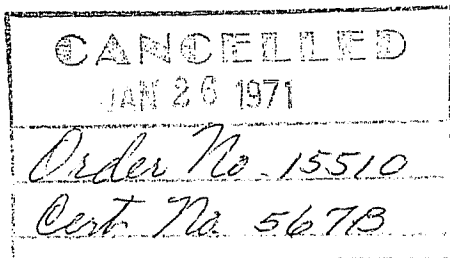 CANCELLED
JAN 26 1971
Order No. 15510
Cert. No. 567B